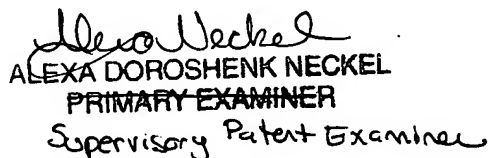 Alexa Neckel
ALEXA DOROSHENK NECKEL
PRIMARY EXAMINER
Supervisory Patent Examiner